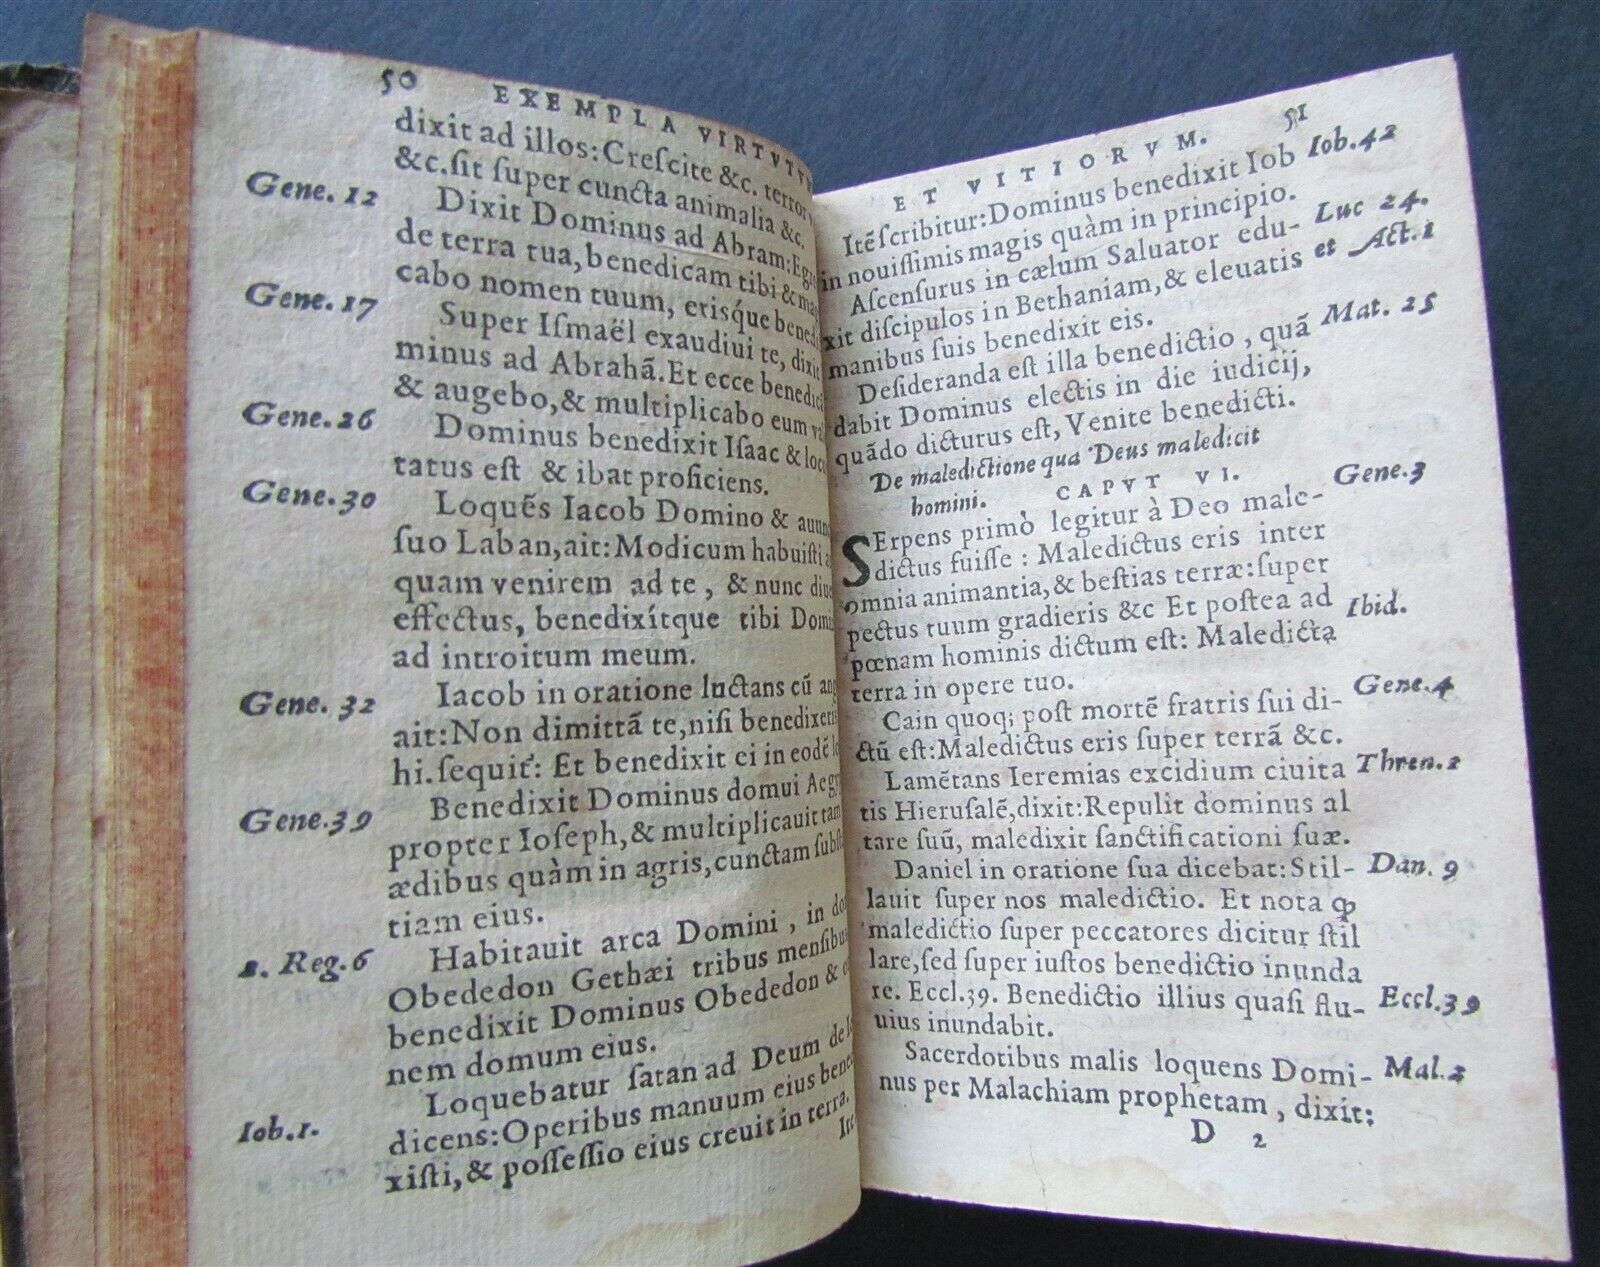 50 EXEMPLA VIRTVTV
dixit ad illos: Creſcite &c. terror
&c. ſit ſuper cuncta animalia &c.
Gene. 12 Dixit Dominus ad Abram: Egre
de terra tua, benedicam tibi & mag
cabo nomen tuum, eriſque bened
Gene. 17 Super Iſmaël exaudiui te, dixit
minus ad Abrahã. Et ecce benedicã
& augebo, & multiplicabo eum
Gene. 26 Dominus benedixit Iſaac & locu
tatus eſt & ibat proficiens.
Gene. 30 Loquẽs Iacob Domino & auun
ſuo Laban, ait: Modicum habuiſti a
quam venirem ad te, & nunc diue
effectus, benedixítque tibi Dom
ad introitum meum.
Gene. 32 Iacob in oratione luctans cũ ang
ait: Non dimittã te, niſi benedixeris
hi. ſequit': Et benedixit ei in eodẽ lo
Gene. 39 Benedixit Dominus domui Aegy
propter Ioſeph, & multiplicauit tam
ædibus quàm in agris, cunctam ſubſt
tiam eius.
2. Reg. 6 Habitauit arca Domini, in do
Obededon Gethæi tribus menſibus
benedixit Dominus Obededon & o
nem domum eius.
Loquebatur ſatan ad Deum de Io
Iob. 1. dicens: Operibus manuum eius bene
xiſti, & poſſeſſio eius creuit in terra.
Ite
ET VITIORVM. 51
Itẽ ſcribitur: Dominus benedixit Iob Iob. 42
in nouiſſimis magis quàm in principio.
Aſcenſurus in cælum Saluator edu- Luc 24.
xit diſcipulos in Bethaniam, & eleuatis et Act. 1
manibus ſuis benedixit eis.
Deſideranda eſt illa benedictio, quã Mat. 25
dabit Dominus electis in die iudicij,
quãdo dicturus eſt, Venite benedicti.
De maledictione qua Deus maledicit
homini. CAPVT VI.
SErpens primò legitur à Deo male- Gene. 3
dictus fuiſſe: Maledictus eris inter
omnia animantia, & beſtias terræ: ſuper
pectus tuum gradieris &c Et poſtea ad Ibid.
pœnam hominis dictum eſt: Maledicta
terra in opere tuo.
Cain quoq; poſt mortẽ fratris ſui di- Gene. 4
ctũ eſt: Maledictus eris ſuper terrã &c.
Lamẽtans Ieremias excidium ciuita Thren. 2
tis Hieruſalẽ, dixit: Repulit dominus al
tare ſuũ, maledixit ſanctificationi ſuæ.
Daniel in oratione ſua dicebat: Stil- Dan. 9
lauit ſuper nos maledictio. Et nota ꝙ
maledictio ſuper peccatores dicitur ſtil
lare, ſed ſuper iuſtos benedictio inunda
re. Eccl. 39. Benedictio illius quaſi flu- Eccl. 39
uius inundabit.
Sacerdotibus malis loquens Domi- Mal. 2
nus per Malachiam prophetam, dixit:
D 2